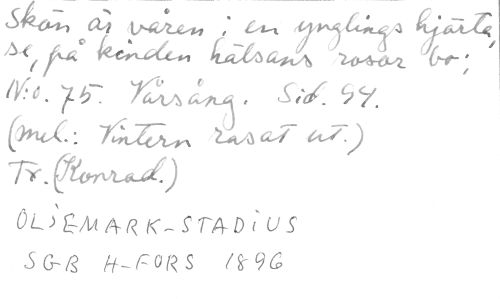 Skön är våren i en ynglings hjärta,
se, på kinden hälsans rosor bo;
N:o. 75. Vårsång. Sid. 94.
(mel.: Vintern rasat ut.)
Tr. (Konrad.)
OLJEMARK-STADIUS
SGB H-FORS 1896